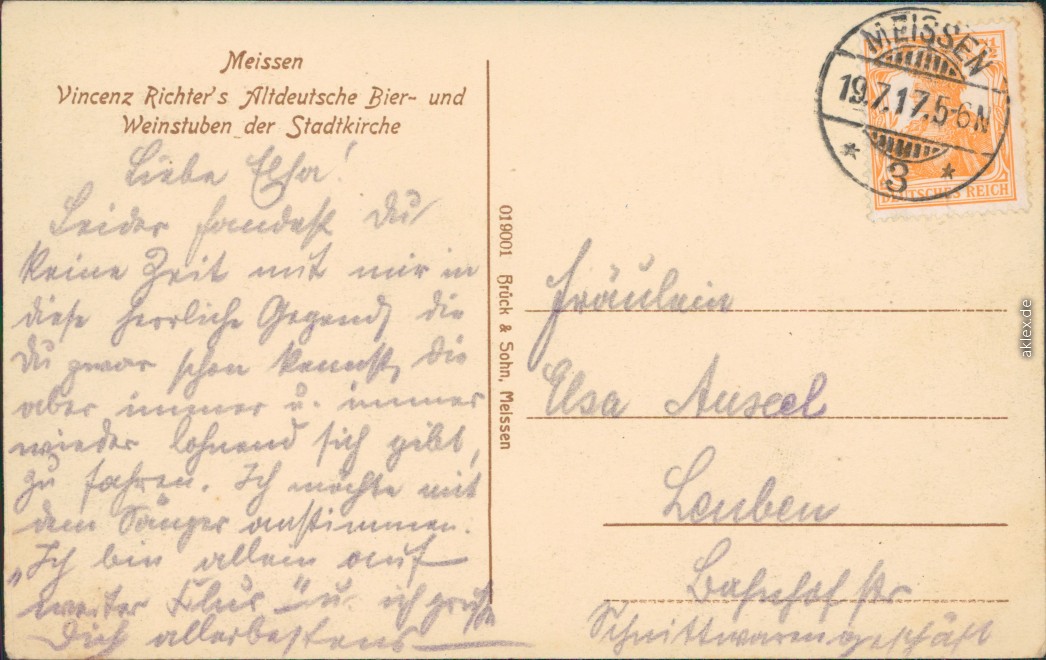 Meissen
Vincenz Richter's Altdeutsche Bier- und
Weinstuben der Stadtkirche
Liebe Elsa!
Leider fandest Du
keine Zeit mit mir in
diese herrliche Gegend, die
Du zwar schon kennst, die
aber immer u. immer
wieder lohnend sich gibt,
zu fahren. Ich möchte mit
dem Sänger anstimmen.
„Ich bin allein auf
weiter Flur" u. ich grüße
Dich allerbestens
019001 Brück & Sohn, Meissen
MEISSEN
19.7.17.5-6N
* 3 *
DEUTSCHES REICH
Fräulein
Elsa
Leuben
Bahnhofstr
Schnittwarengeschäft
aklex.de